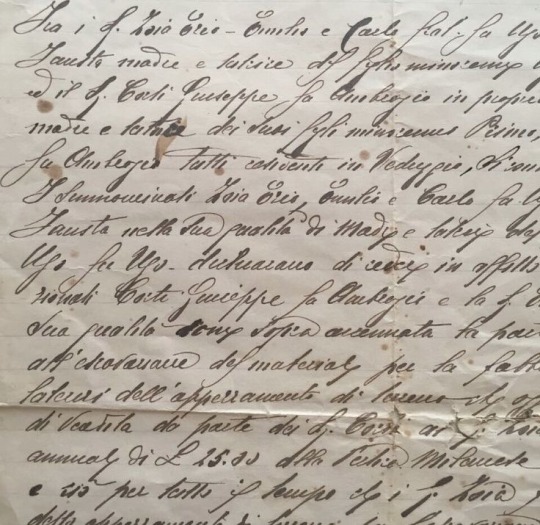 Fra i S. Zoia Ezio - Emilio e Carlo frat. fu Ugo
Fausta madre e tutrice dei figli minorenni
ed il S. Corti Giuseppe fu Ambrogio in proprio
madre e tutrice dei suoi figli minorenni Primo,
fu Ambrogio tutti residenti in Vedeggio, Si sono
I summenzionati Zoia Ezio, Emilio e Carlo fu Ug
Fausta nella sua qualità di Madre e tutrice
Ugo fu Ugo - dichiarano di cedere in affitto
zionati Corti Giuseppe fu Ambrogio e la S.
sua qualità come sopra accennata la parte
all'escavazione del materiale per la fabb
laterizi dell'appezzamento di terreno
di vendita da parte dei S. Corti ai S. Zoia
annuali di £ 25.00 alla Pertica Milanese
e ciò per tutto il tempo che i S. Zoia
dello appezzamento di terreno